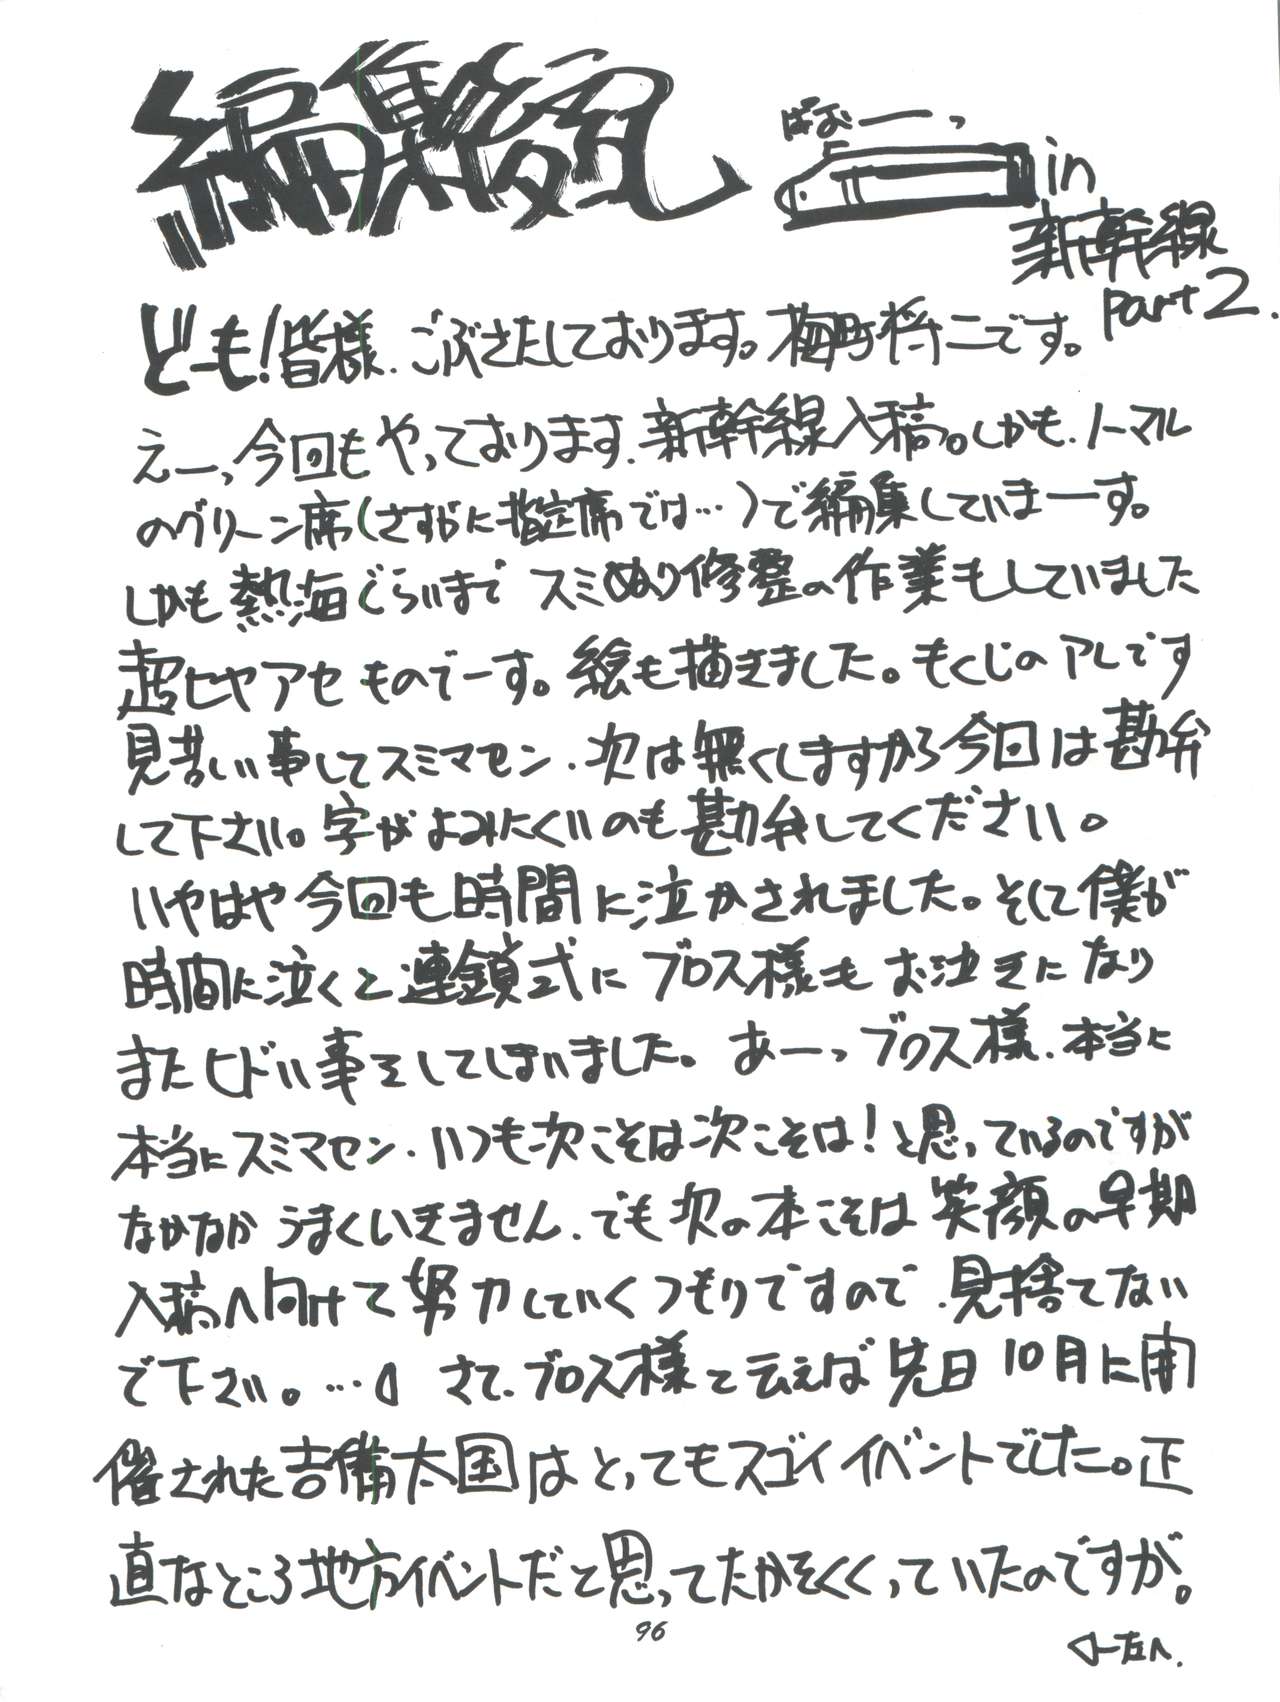 編集後記
ぱおーーっ
in
新幹線
part 2.
どーも!皆様.ごぶさたしております。梅町将二です。
えーっ今回もやっております.新幹線入稿。しかも.ノーマル
のグリーン席(さすがに指定席では…)で編集していまーす。
しかも熱海ぐらいまでスミぬり修整の作業もしていました
超ヒヤアセものでーす。絵も描きました。もくじのアレです
見苦しい事してスミマセン.次は無くしますから今回は勘弁
して下さい。字がよみにくいのも勘弁してください。
いやはや今回も時間に泣かされました。そして僕が
時間に泣くと連鎖式にブロス様もお泣きになり
またヒドい事をしてしまいました。あーっブロス様.本当に
本当にスミマセン.いつも次こそは次こそは!と思っているのですが
なかなかうまくいきません.でも次の本こそは笑顔の早期
入稿へ向けて努力していくつもりですので.見捨てない
で下さい。…さて.ブロス様と云えば先日10月に開
催された吉備太国はとってもスゴイイベントでした。正
直なところ地方イベントだと思ってたかをくくっていたのですが。
96
左へ.